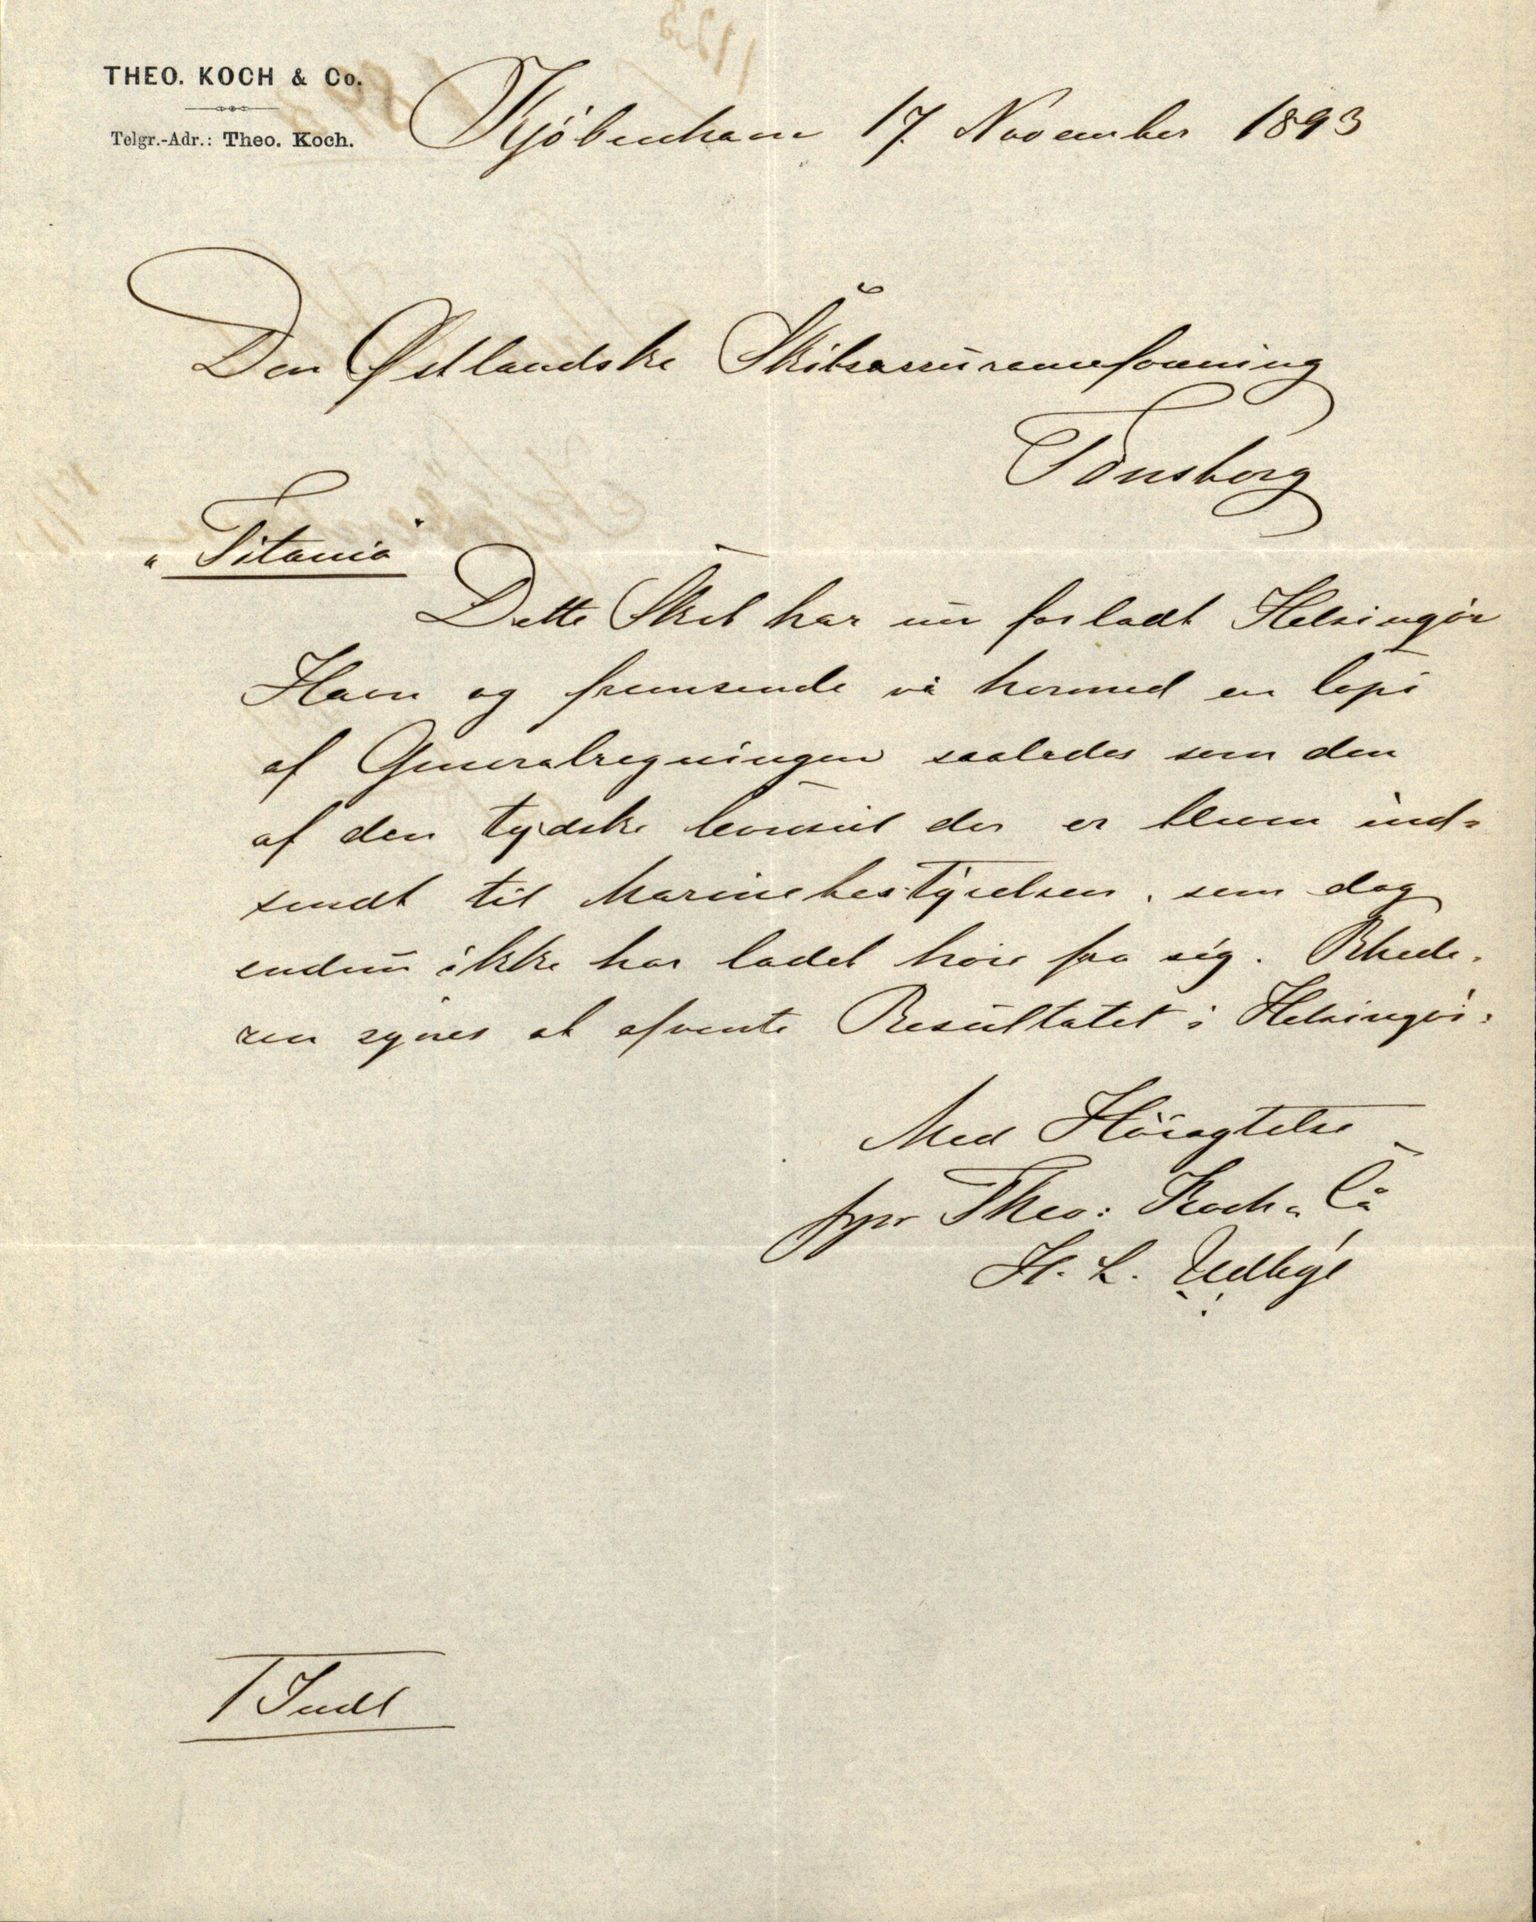 THEO. KOCH & Co.
Telgr.-Adr.: Theo. Koch.
Kjöbenhavn 17. November 1893
Den Østlandske Skibsassuranceforening
Tönsberg
"Titania"
Dette Skib har nu forladt Helsingör
Havn og fremsende vi hermed en Copi
af Generalregningen saaledes som den
af den tydske Consul der er bleven ind-
sendt til Marinebestyrelsen, som dog
endnu ikke har ladet höre fra sig. Rhede-
ren synes at afvente Resultatet i Helsingör.
Med Höiagtelse
Theo: Koch & Co
H. L.
1 Indl